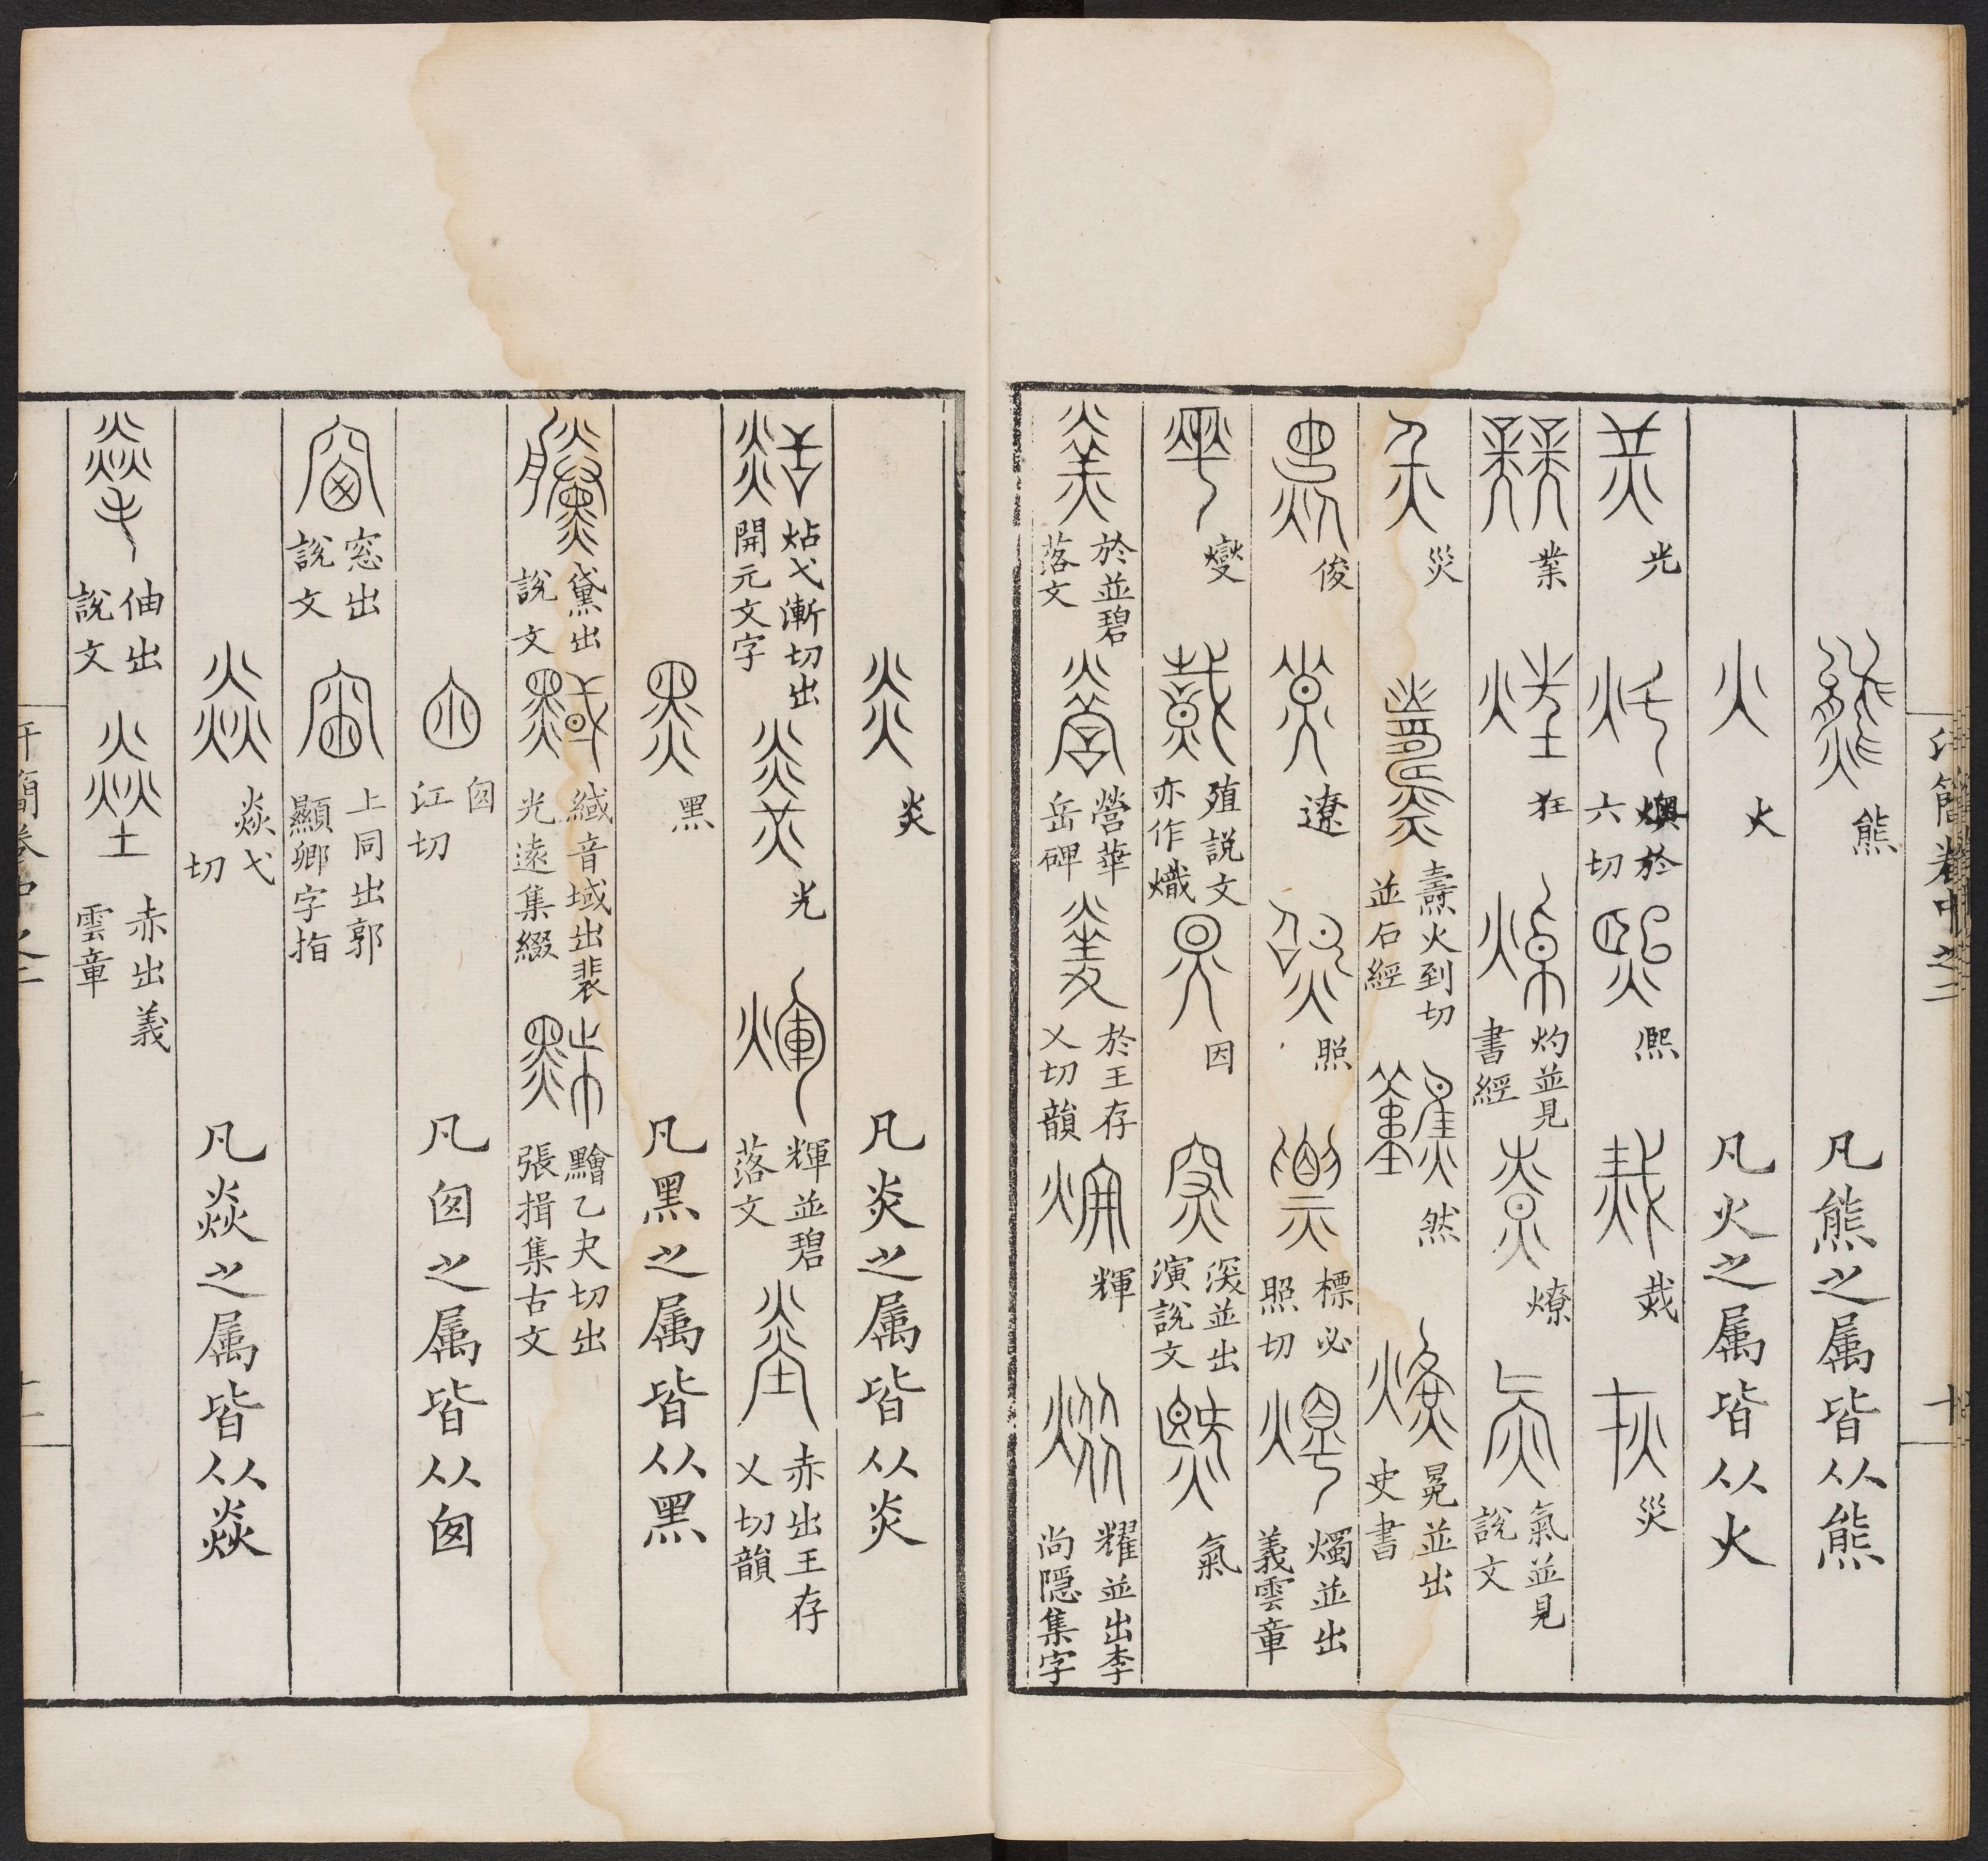 熊 凡熊之属皆从熊
火 凡火之属皆从火
光 燠於六切 熈 烖 災
業 狂 灼並見書經 燎 氣並見説文
災 燾火到切並石經 然 冕並出史書
俊 遼 照 標必照切 燭並出義雲章
燮 殖説文亦作熾 因 湥並出演説文 氣
於並碧落文 營華岳碑 於王存乂切韻 輝 耀並出李尚隠集字
炎 凡炎之属皆从炎
炶弋漸切出開元文字 光 輝並碧落文 赤出王存乂切韻
黑 凡黑之属皆从黑
黛出説文 緎音域出裴光遠集綴 黵乙夬切出張揖集古文
囱江切 凡囱之属皆从囱
窓出説文 上同出郭顯卿字指
焱弋切 凡焱之属皆从焱
伷出説文 赤出義雲章